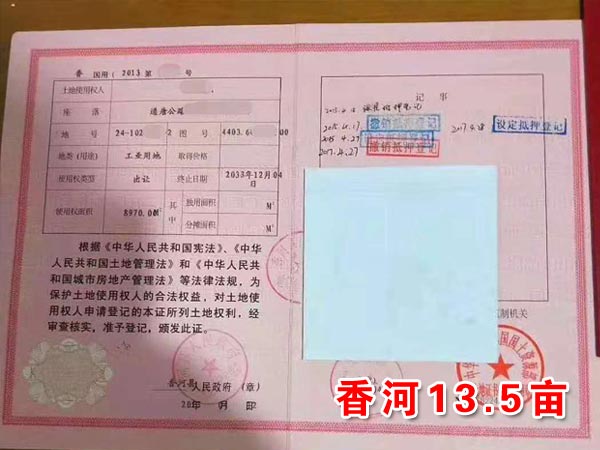 香 国用(2013)第 号
土地使用权人
座落 遵唐公司
地号 24-102 2 图号 4403.6 00
地类(用途) 工业用地 取得价格
使用权类型 出让 终止日期 2033年12月04日
使用权面积 8970.00M² 其中 独用面积 M²
分摊面积 M²
根据《中华人民共和国宪法》、《中华
人民共和国土地管理法》和《中华人民共
和国城市房地产管理法》等法律法规，为
保护土地使用权人的合法权益，对土地使
用权人申请登记的本证所列土地权利，经
审查核实，准予登记，颁发此证。
香河县人民政府(章)
20 年 月 日
记事
撤销抵押登记
2017.4.18 设定抵押登记
设定抵押登记
撤销抵押登记
2017.4.27
制机关
香河13.5亩